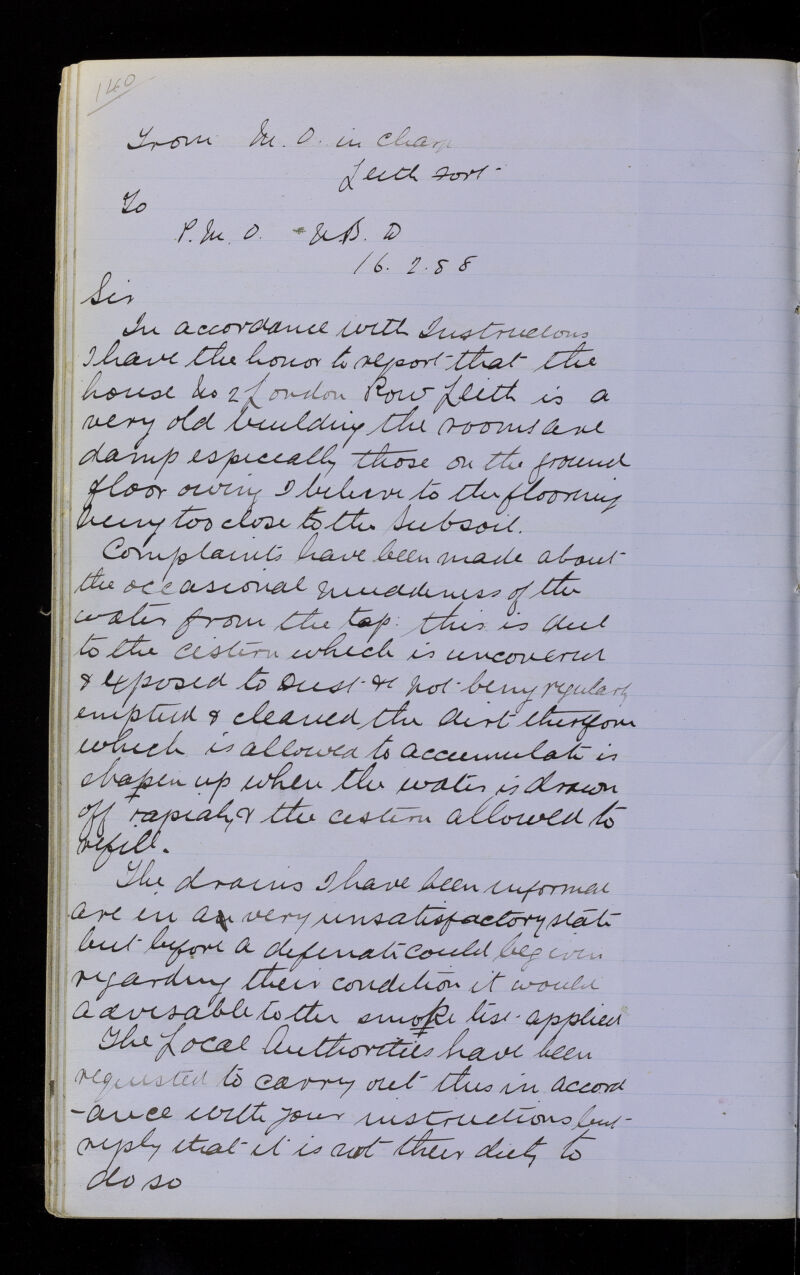 140
From M. O. in charge
Leith Fort
To
P. M. O. N B. D
16. 2. 88
Sir
In accordance with Instructions
I have the honor to report that the
house No 2 London Row Leith is a
very old building the rooms are
damp especially those on the ground
floor owing I believe to the flooring
being too close to the Subsoil.
Complaints have been made about
the occasional muddiness of the
water from the tap: this is due
to the cistern which is uncovered
& exposed to dust &c not being regularly
emptied & cleaned the dirt therefrom
which is allowed to accumulate is
shaken up when the water is drawn
off rapidly & the cistern allowed to
refill.
The drains I have been informed
are in a very unsatisfactory state
but before a definate could be given
regarding their condition it would
advisable to the smoke test applied
The Local Authorities have been
requested to carry out this in accord
-ance with your instructions but
reply that it is not their duty to
do so